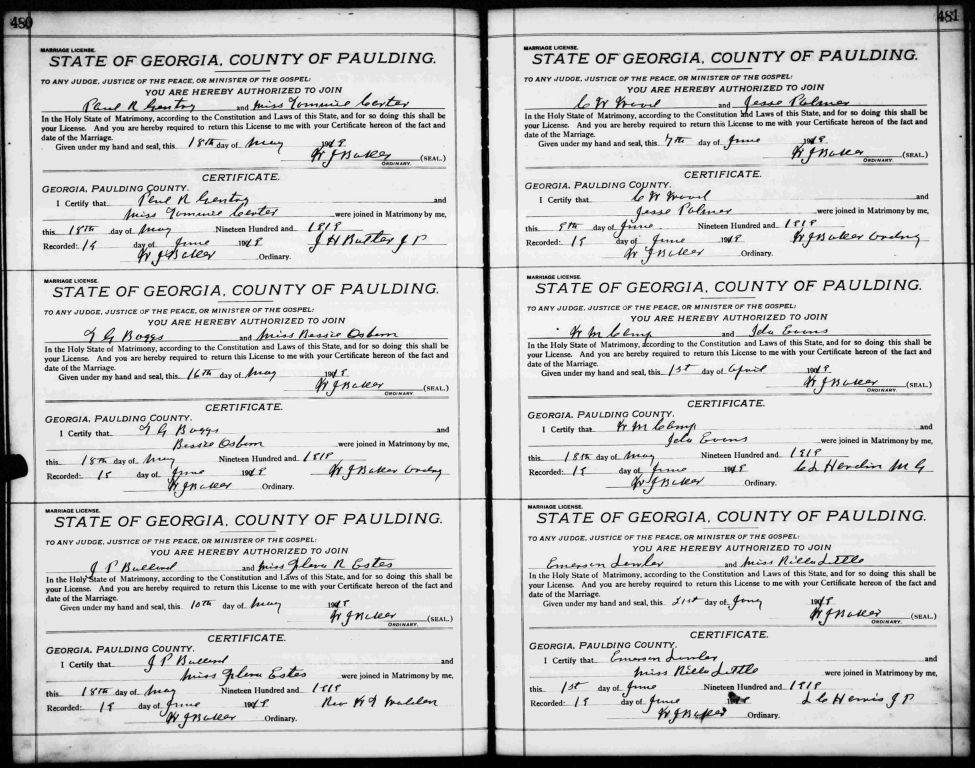 480
MARRIAGE LICENSE.
STATE OF GEORGIA, COUNTY OF PAULDING.
TO ANY JUDGE, JUSTICE OF THE PEACE, OR MINISTER OF THE GOSPEL:
YOU ARE HEREBY AUTHORIZED TO JOIN
Paul R Gentry and Miss Tommie Carter
In the Holy State of Matrimony, according to the Constitution and Laws of this State, and for so doing this shall be
your License. And you are hereby required to return this License to me with your Certificate hereon of the fact and
date of the Marriage.
Given under my hand and seal, this 18th day of May
W J Baker (SEAL.)
ORDINARY.
CERTIFICATE.
GEORGIA, PAULDING COUNTY.
I Certify that Paul R Gentry and
Miss Tommie Carter were joined in Matrimony by me,
this 18th day of May Nineteen Hundred and
Recorded: day of June J H Butler J P
W J Baker Ordinary.
MARRIAGE LICENSE.
STATE OF GEORGIA, COUNTY OF PAULDING.
TO ANY JUDGE, JUSTICE OF THE PEACE, OR MINISTER OF THE GOSPEL:
YOU ARE HEREBY AUTHORIZED TO JOIN
G Boggs and Miss Bessie Osburn
In the Holy State of Matrimony, according to the Constitution and Laws of this State, and for so doing this shall be
your License. And you are hereby required to return this License to me with your Certificate hereon of the fact and
date of the Marriage.
Given under my hand and seal, this 16th day of May
W J Baker (SEAL.)
ORDINARY
CERTIFICATE.
GEORGIA, PAULDING COUNTY.
I Certify that G Boggs and
Bessie Osburn were joined in Matrimony by me,
this 18th day of May Nineteen Hundred and
Recorded: day of June W J Baker Ordny
W J Baker Ordinary.
MARRIAGE LICENSE.
STATE OF GEORGIA, COUNTY OF PAULDING.
TO ANY JUDGE, JUSTICE OF THE PEACE, OR MINISTER OF THE GOSPEL:
YOU ARE HEREBY AUTHORIZED TO JOIN
J P Bullard and Miss R Estes
In the Holy State of Matrimony, according to the Constitution and Laws of this State, and for so doing this shall be
your License. And you are hereby required to return this License to me with your Certificate hereon of the fact and
date of the Marriage.
Given under my hand and seal, this 10th day of May
W J Baker (SEAL.)
ORDINARY.
CERTIFICATE.
GEORGIA, PAULDING COUNTY.
I Certify that J P Bullard and
Miss Estes were joined in Matrimony by me,
this 18th day of May Nineteen Hundred and
Recorded: day of June Rev Walden
W J Baker Ordinary.
481
MARRIAGE LICENSE.
STATE OF GEORGIA, COUNTY OF PAULDING.
TO ANY JUDGE, JUSTICE OF THE PEACE, OR MINISTER OF THE GOSPEL:
YOU ARE HEREBY AUTHORIZED TO JOIN
C W Wood and Jesse Palmer
In the Holy State of Matrimony, according to the Constitution and Laws of this State, and for so doing this shall be
your License. And you are hereby required to return this License to me with your Certificate hereon of the fact and
date of the Marriage.
Given under my hand and seal, this 7th day of June
W J Baker (SEAL.)
ORDINARY.
CERTIFICATE.
GEORGIA, PAULDING COUNTY.
I Certify that C W Wood and
Jesse Palmer were joined in Matrimony by me,
this day of June Nineteen Hundred and
Recorded: day of June W J Baker Ordny
W J Baker Ordinary.
MARRIAGE LICENSE.
STATE OF GEORGIA, COUNTY OF PAULDING.
TO ANY JUDGE, JUSTICE OF THE PEACE, OR MINISTER OF THE GOSPEL:
YOU ARE HEREBY AUTHORIZED TO JOIN
W M Camp and Ida Evans
In the Holy State of Matrimony, according to the Constitution and Laws of this State, and for so doing this shall be
your License. And you are hereby required to return this License to me with your Certificate hereon of the fact and
date of the Marriage.
Given under my hand and seal, this 1st day of April
W J Baker (SEAL.)
ORDINARY.
CERTIFICATE.
GEORGIA, PAULDING COUNTY.
I Certify that W M Camp and
Ida Evans were joined in Matrimony by me,
this 18th day of May Nineteen Hundred and
Recorded: day of June M G
W J Baker Ordinary.
MARRIAGE LICENSE.
STATE OF GEORGIA, COUNTY OF PAULDING.
TO ANY JUDGE, JUSTICE OF THE PEACE, OR MINISTER OF THE GOSPEL:
YOU ARE HEREBY AUTHORIZED TO JOIN
Emerson and Miss Rilla Little
In the Holy State of Matrimony, according to the Constitution and Laws of this State, and for so doing this shall be
your License. And you are hereby required to return this License to me with your Certificate hereon of the fact and
date of the Marriage.
Given under my hand and seal, this 21st day of
W J Baker (SEAL.)
ORDINARY.
CERTIFICATE.
GEORGIA, PAULDING COUNTY.
I Certify that Emerson and
Miss Rilla Little were joined in Matrimony by me,
this 1st day of June Nineteen Hundred and
Recorded: day of June J P
W J Baker Ordinary.